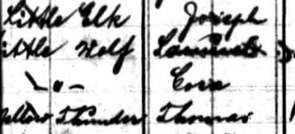 Little Elk Joseph
ittle Wolf
— " — Cora
ellow Thunder Thomas